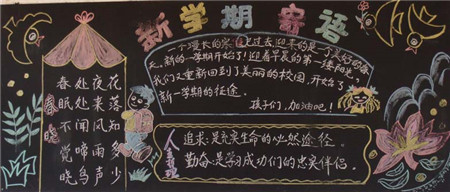 新学期寄语
一个漫长的寒假已过去,迎来的是一个美好的春
天,新的一学期开始了!迎着早晨的第一缕阳光,
我们又重新回到了美丽的校园,开始了
新一学期的征途。
孩子们,加油吧!
春晓
春眠不觉晓
处处闻啼鸟
夜来风雨声
花落知多少
人生
追求:是充实生命的必然途径.
勤奋:是学习成功们的忠实伴侣.